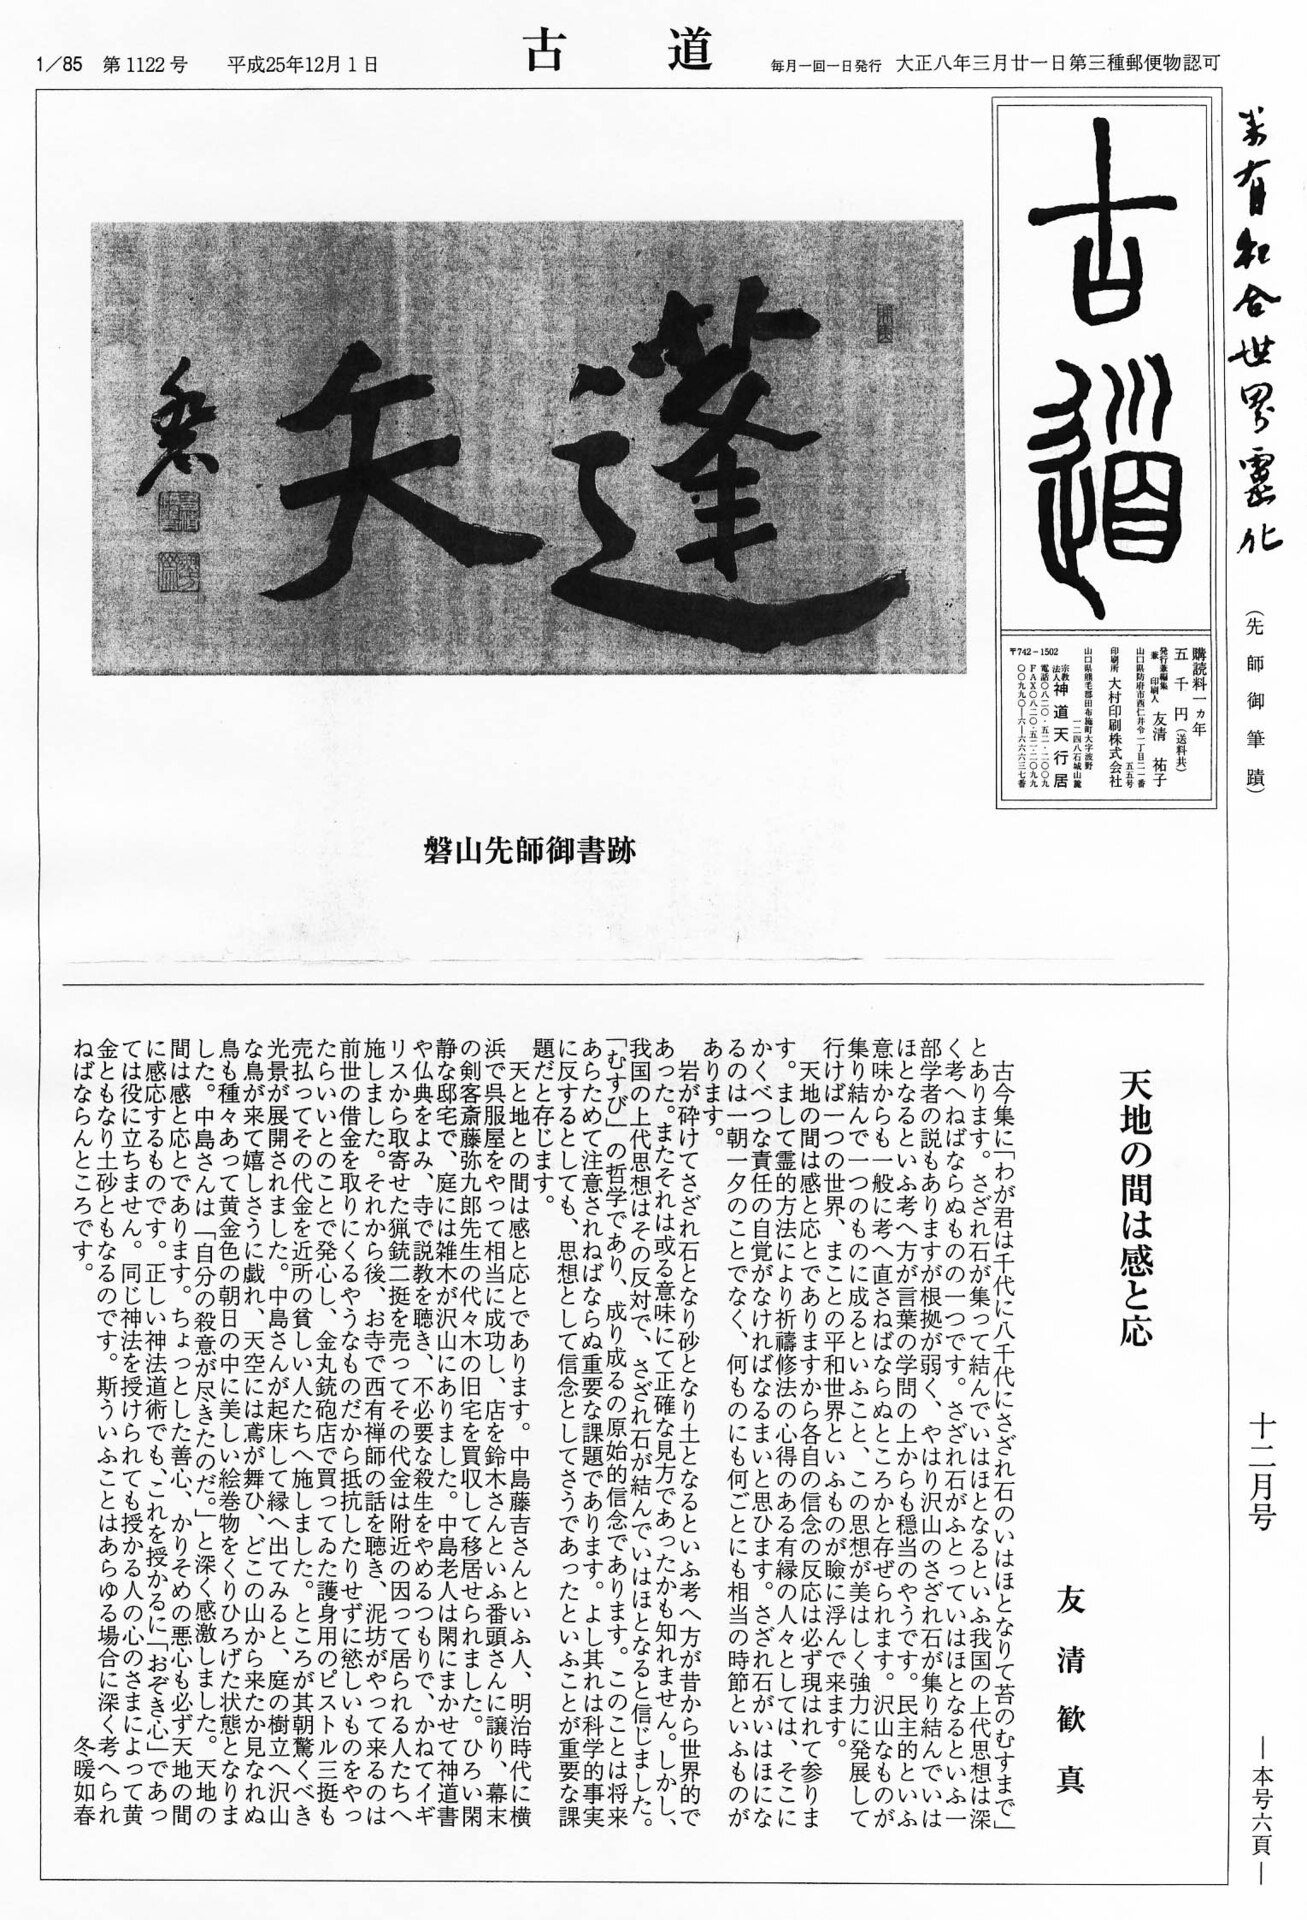 1／85 第1122号 平成25年12月1日
古道
毎月一回一日発行 大正八年三月廿一日第三種郵便物認可
古道
購読料一ヵ年
五千円（送料共）
発行兼編集兼印刷人 友清祐子
山口県防府市西仁井令一丁目二一番五五号
印刷所 大村印刷株式会社
山口県熊毛郡田布施町大字波野一二四八石城山麓
宗教法人 神道天行居
電話〇八二〇・五二・二〇〇九
FAX〇八二〇・五二・二〇九九
〇〇九九〇―六―六六六三七番
〒742－1502
万有和合世界霊化
（先師御筆蹟）
蓬矢
磐山先師御書跡
十二月号
―本号六頁―
天地の間は感と応
友清歓真
古今集に「わが君は千代に八千代にさざれ石のいはほとなりて苔のむすまで」
とあります。さざれ石が集って結んでいはほとなるといふ我国の上代思想は深
く考へねばならぬものの一つです。さざれ石がふとっていはほとなるといふ一
部学者の説もありますが根拠が弱く、やはり沢山のさざれ石が集り結んでいは
ほとなるといふ考へ方が言葉の学問の上からも穏当のやうです。民主的といふ
意味からも一般に考へ直さねばならぬところかと存ぜられます。沢山なものが
集り結んで一つのものに成るといふこと、この思想が美はしく強力に発展して
行けば一つの世界、まことの平和世界といふものが瞼に浮んで来ます。
天地の間は感と応とでありますから各自の信念の反応は必ず現はれて参りま
す。まして霊的方法により祈禱修法の心得のある有縁の人々としては、そこに
かくべつな責任の自覚がなければなるまいと思ひます。さざれ石がいはほにな
るのは一朝一夕のことでなく、何ものにも何ごとにも相当の時節といふものが
あります。
岩が砕けてさざれ石となり砂となり土となるといふ考へ方が昔から世界的で
あった。またそれは或る意味にて正確な見方であったかも知れません。しかし、
我国の上代思想はその反対で、さざれ石が結んでいはほとなると信じました。
「むすび」の哲学であり、成り成るの原始的信念であります。このことは将来
あらためて注意されねばならぬ重要な課題であります。よし其れは科学的事実
に反するとしても、思想として信念としてさうであったといふことが重要な課
題だと存じます。
天と地との間は感と応とであります。中島藤吉さんといふ人、明治時代に横
浜で呉服屋をやって相当に成功し、店を鈴木さんといふ番頭さんに譲り、幕末
の剣客斎藤弥九郎先生の代々木の旧宅を買収して移居せられました。ひろい閑
静な邸宅で、庭には雑木が沢山にありました。中島老人は閑にまかせて神道書
や仏典をよみ、寺で説教を聴き、不必要な殺生をやめるつもりで、かねてイギ
リスから取寄せた猟銃二挺を売ってその代金は附近の困って居られる人たちへ
施しました。それから後、お寺で西有禅師の話を聴き、泥坊がやって来るのは
前世の借金を取りにくるやうなものだから抵抗したりせずに慾しいものをやっ
たらいいとのことで発心し、金丸銃砲店で買ってゐた護身用のピストル三挺も
売払ってその代金を近所の貧しい人たちへ施しました。ところが其朝驚くべき
光景が展開されました。中島さんが起床して縁へ出てみると、庭の樹立へ沢山
な鳥が来て嬉しさうに戯れ、天空には鳶が舞ひ、どこの山から来たか見なれぬ
鳥も種々あって黄金色の朝日の中に美しい絵巻物をくりひろげた状態となりま
した。中島さんは「自分の殺意が尽きたのだ。」と深く感激しました。天地の
間は感と応とであります。ちょっとした善心、かりそめの悪心も必ず天地の間
に感応するものです。正しい神法道術でも、これを授かるに「おぞき心」であっ
ては役に立ちません。同じ神法を授けられても授かる人の心のさまによって黄
金ともなり土砂ともなるのです。斯ういふことはあらゆる場合に深く考へられ
ねばならんところです。
冬暖如春